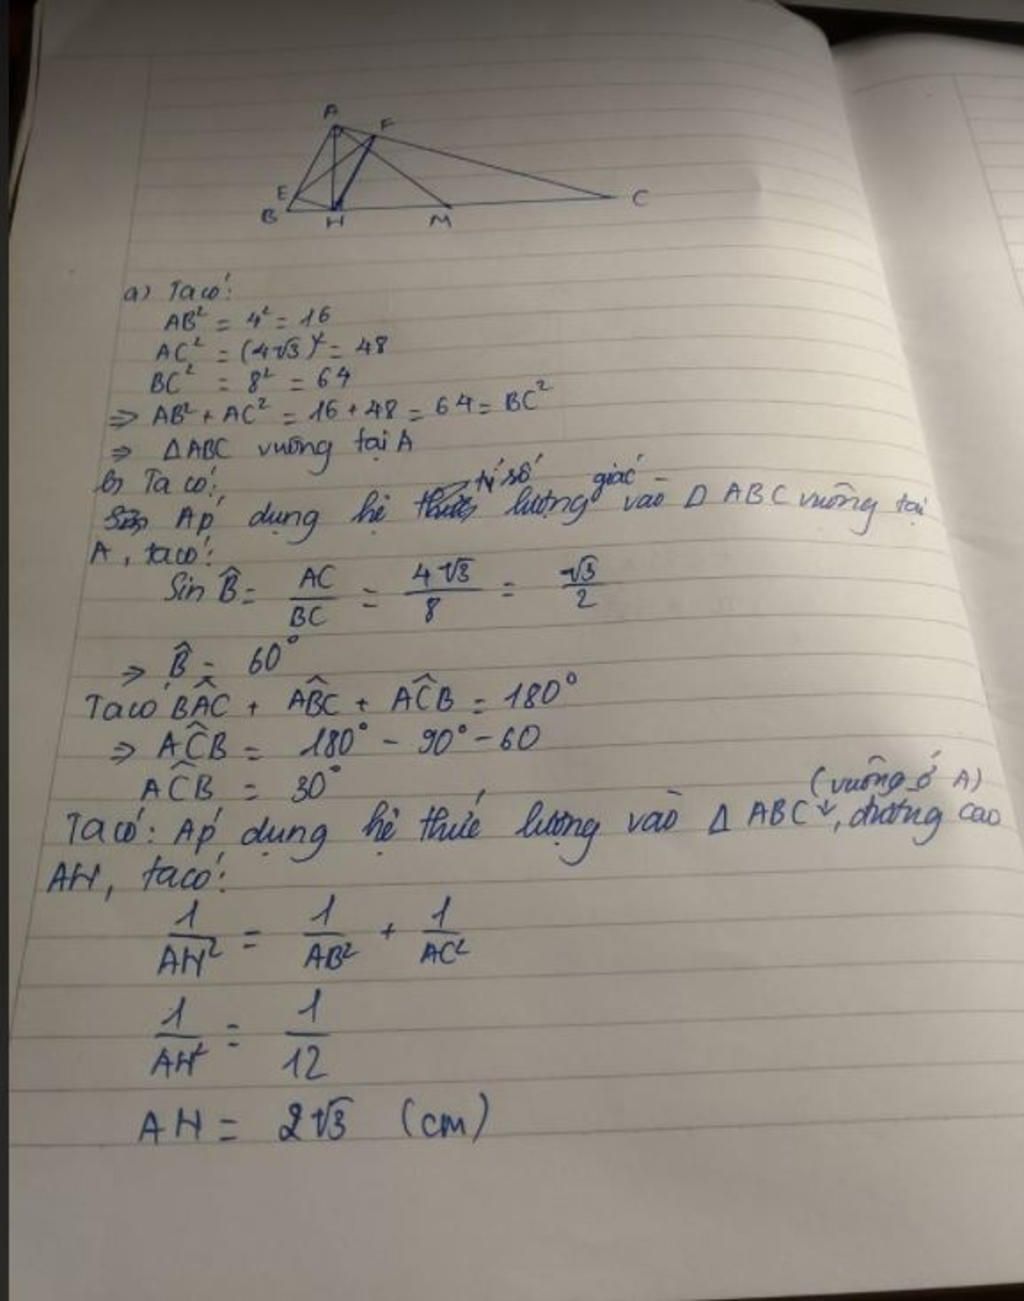 A
F
E
B
H
M
C
a) Ta có:
AB² = 4² = 16
AC² = (4√3)² = 48
BC² = 8² = 64
⇒ AB² + AC² = 16 + 48 = 64 = BC²
⇒ ΔABC vuông tại A
b) Ta có:
tỉ số giác
Áp dụng hệ lượng vào Δ ABC vuông tại
A, ta có:
Sin B̂ = AC/BC = 4√3/8 = √3/2
⇒ B̂ = 60°
Ta có BÂC + AB̂C + AĈB = 180°
⇒ AĈB = 180° - 90° - 60
AĈB = 30°
(vuông ở A)
Ta có: Áp dụng hệ thức lượng vào Δ ABC, đường cao
AH, ta có:
1/AH² = 1/AB² + 1/AC²
1/AH² = 1/12
AH = 2√3 (cm)